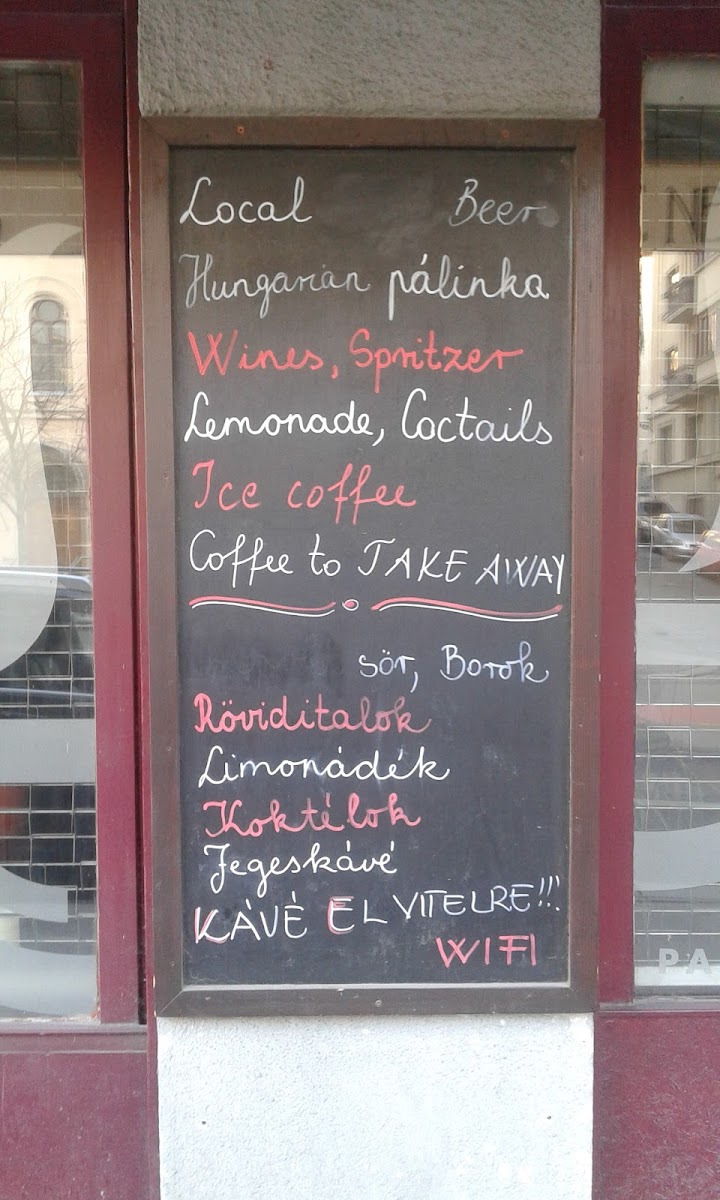 Local Beer
Hungarian pálinka
Wines, Spritzer
Lemonade, Coctails
Ice coffee
Coffee to TAKE AWAY
sör, Borok
Röviditalok
Limonádék
Koktélok
Jegeskávé
KÁVÉ ELVITELRE!!!
WIFI
PA